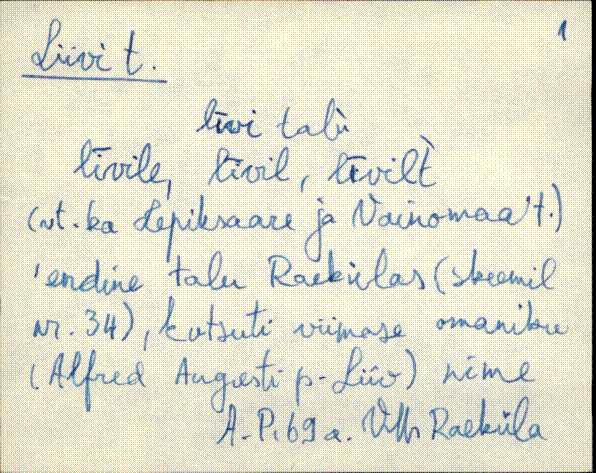 1
Liivi t.
līvi talù
līvile, līvil, līvilt̀
(vt. ka Lepiksaare ja Vainomaa t.)
'endine talu Raekülas (skeemil
nr. 34), kutsuti viimase omaniku
(Alfred Augusti p. Liiv) nime
A. P. 69 a. Raeküla